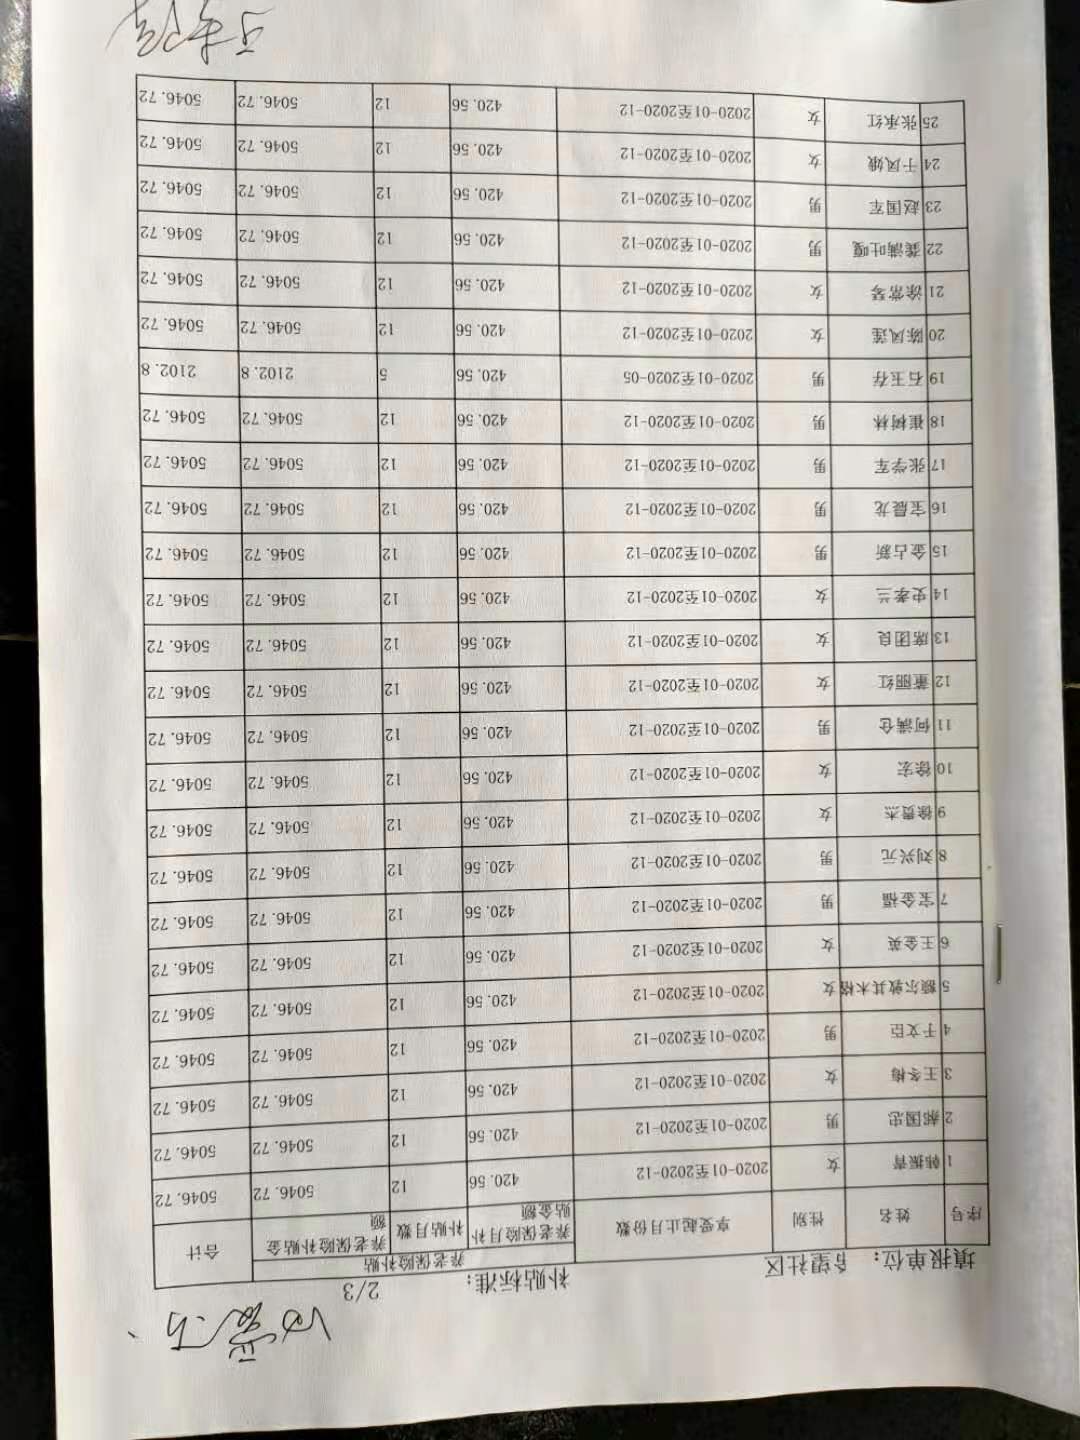 填报单位： 希望社区 补贴标准： 2/3
序号 姓名 性别 享受起止月份数 养老保险补贴 合计
养老保险月补贴金额 补贴月数 养老保险补贴金额
1 韩振青 女 2020-01至2020-12 420.56 12 5046.72 5046.72
2 郝国忠 男 2020-01至2020-12 420.56 12 5046.72 5046.72
3 王冬梅 女 2020-01至2020-12 420.56 12 5046.72 5046.72
4 于文臣 男 2020-01至2020-12 420.56 12 5046.72 5046.72
5 额尔敦其木格 女 2020-01至2020-12 420.56 12 5046.72 5046.72
6 王金英 女 2020-01至2020-12 420.56 12 5046.72 5046.72
7 宝金福 男 2020-01至2020-12 420.56 12 5046.72 5046.72
8 刘兴元 男 2020-01至2020-12 420.56 12 5046.72 5046.72
9 徐贵杰 女 2020-01至2020-12 420.56 12 5046.72 5046.72
10 徐宏 女 2020-01至2020-12 420.56 12 5046.72 5046.72
11 何满仓 男 2020-01至2020-12 420.56 12 5046.72 5046.72
12 董丽红 女 2020-01至2020-12 420.56 12 5046.72 5046.72
13 席团良 女 2020-01至2020-12 420.56 12 5046.72 5046.72
14 史孝兰 女 2020-01至2020-12 420.56 12 5046.72 5046.72
15 金占新 男 2020-01至2020-12 420.56 12 5046.72 5046.72
16 宝晨龙 男 2020-01至2020-12 420.56 12 5046.72 5046.72
17 张学军 男 2020-01至2020-12 420.56 12 5046.72 5046.72
18 崔树林 男 2020-01至2020-12 420.56 12 5046.72 5046.72
19 石玉存 男 2020-01至2020-05 420.56 5 2102.8 2102.8
20 陈凤莲 女 2020-01至2020-12 420.56 12 5046.72 5046.72
21 徐常琴 女 2020-01至2020-12 420.56 12 5046.72 5046.72
22 龚满吐嘎 男 2020-01至2020-12 420.56 12 5046.72 5046.72
23 赵国军 男 2020-01至2020-12 420.56 12 5046.72 5046.72
24 于凤娥 女 2020-01至2020-12 420.56 12 5046.72 5046.72
25 张承红 女 2020-01至2020-12 420.56 12 5046.72 5046.72